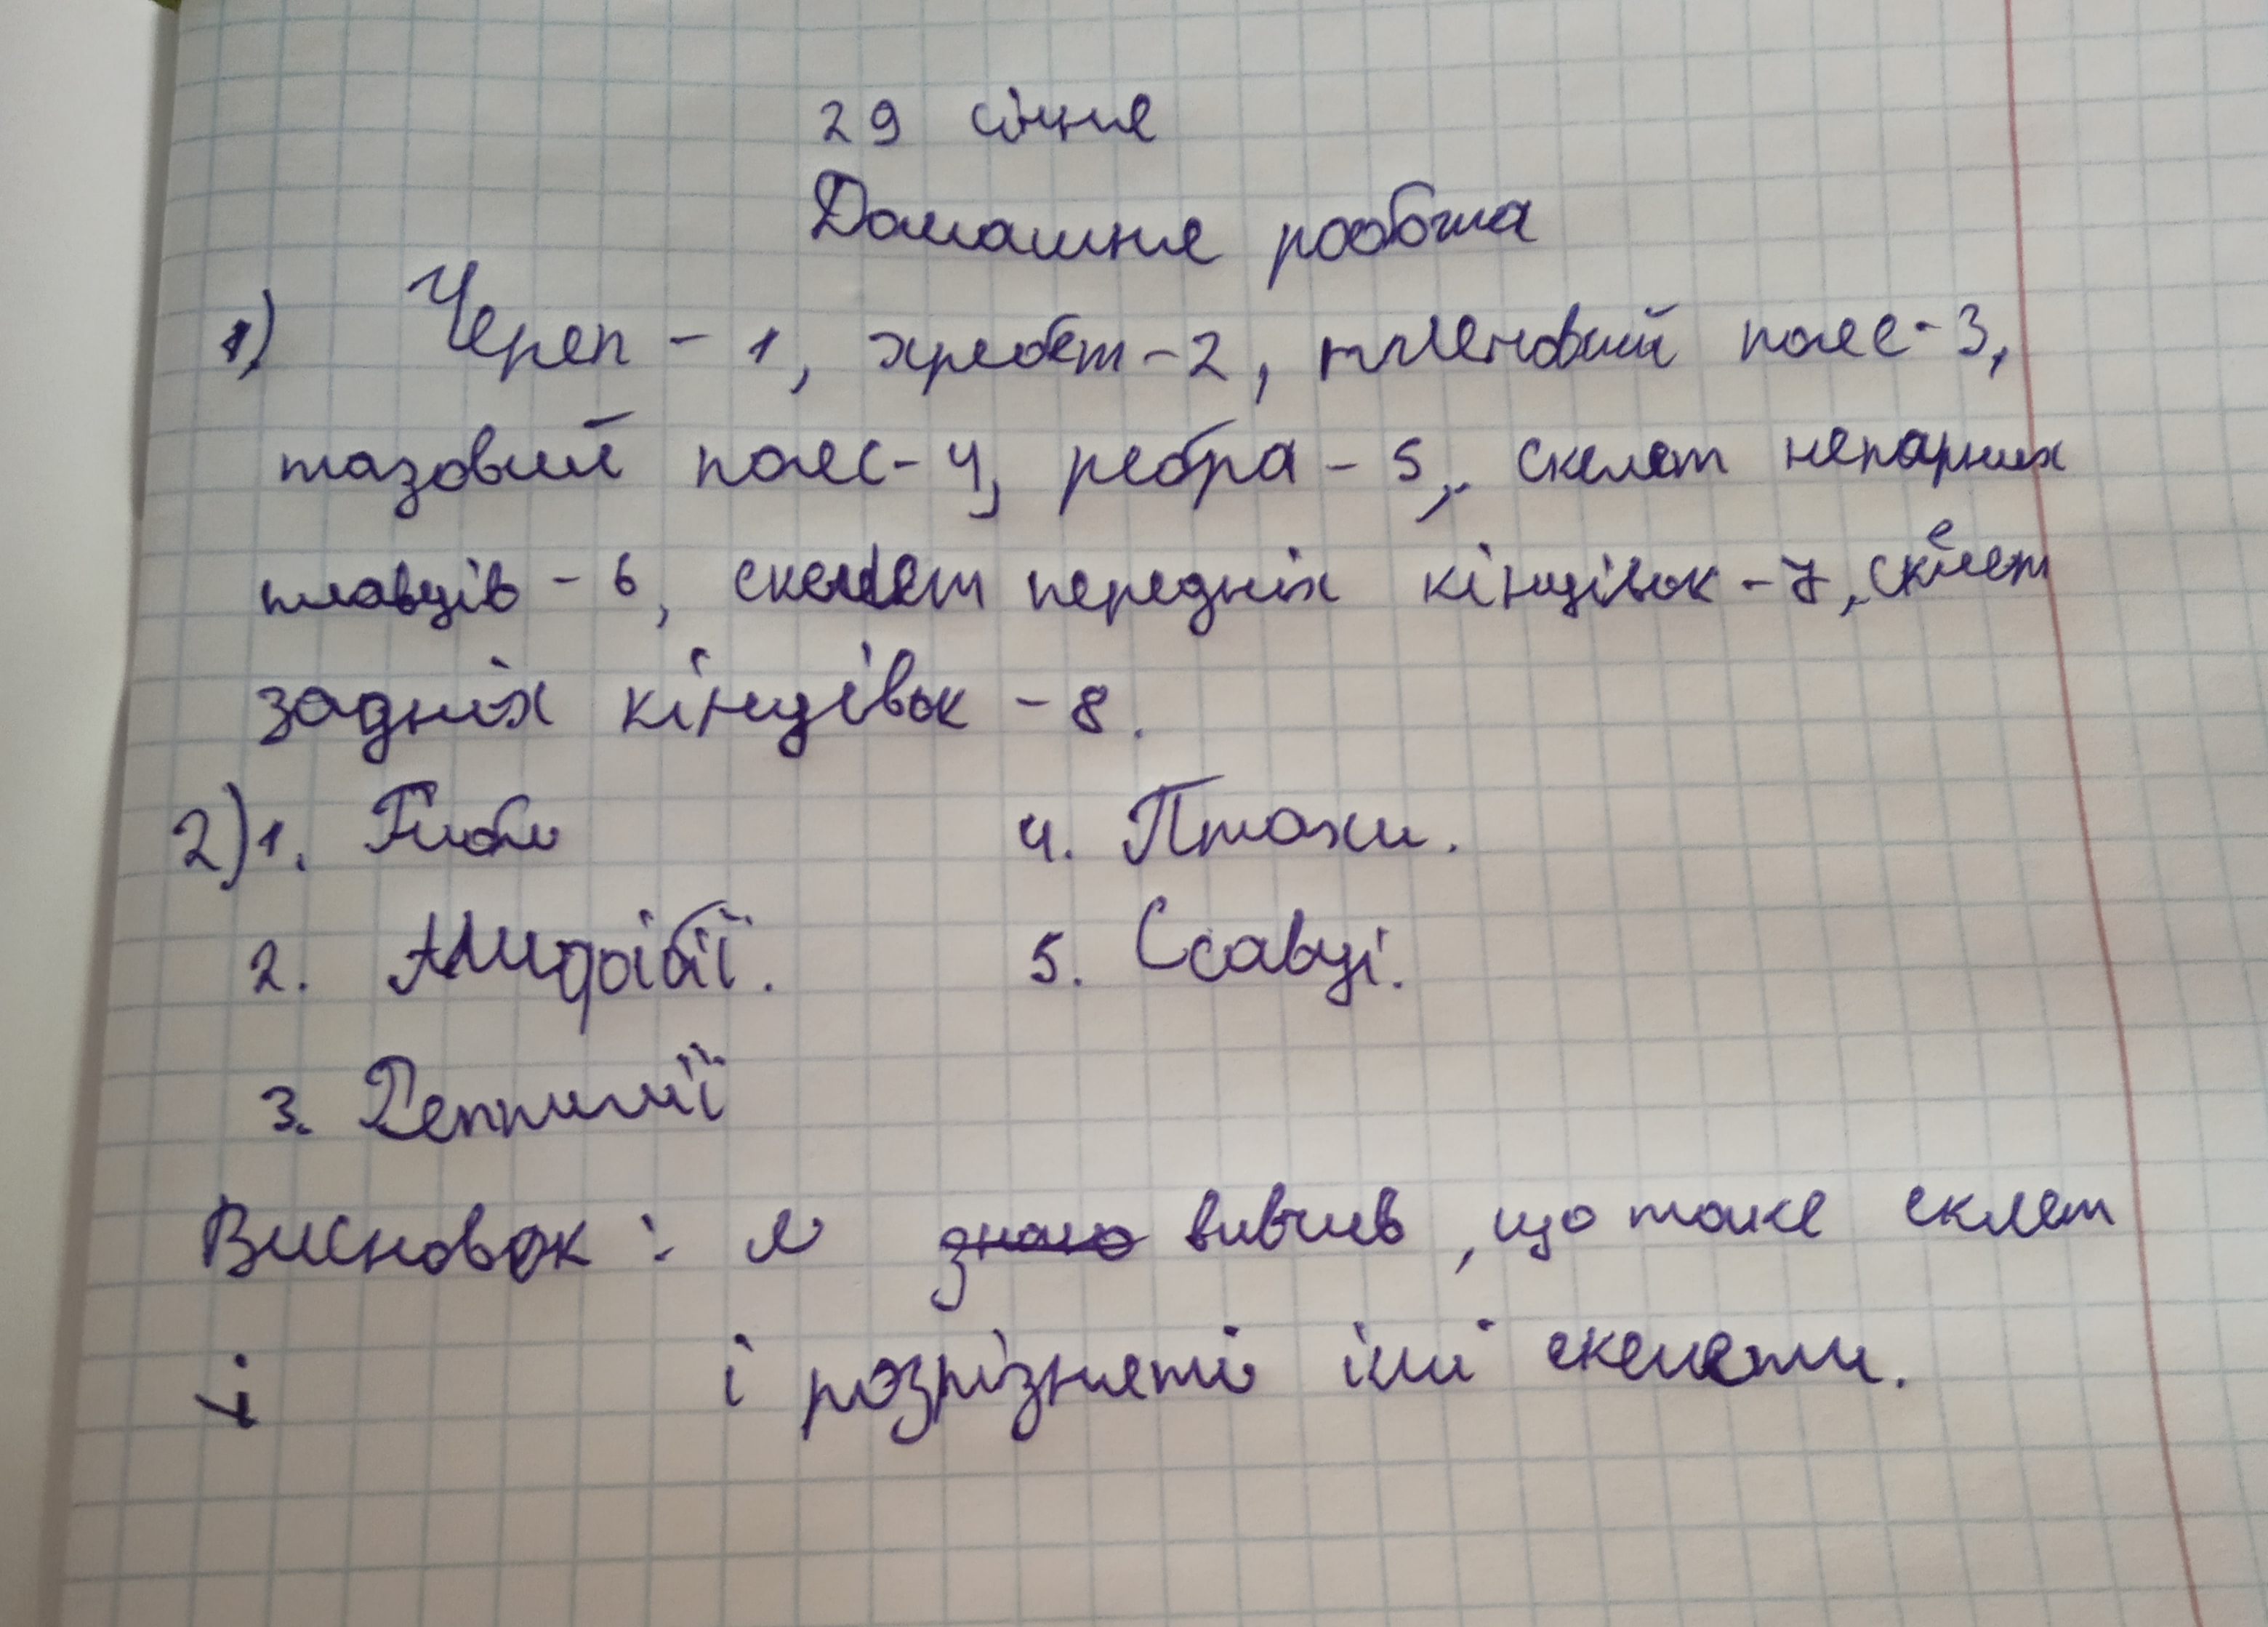 29 січня
Домашня робота
1) Череп - 1, хребет - 2, плечовий пояс - 3,
тазовий пояс - 4, ребра - 5, скелет непарних
плавців - 6, скелет передніх кінцівок - 7, скелет
задніх кінцівок - 8.
2) 1. Риби 4. Птахи.
2. Амфібії. 5. Ссавці.
3. Рептилії
Висновок: я знаю вивчив, що таке склет
і і розрізняти їхні скелети.